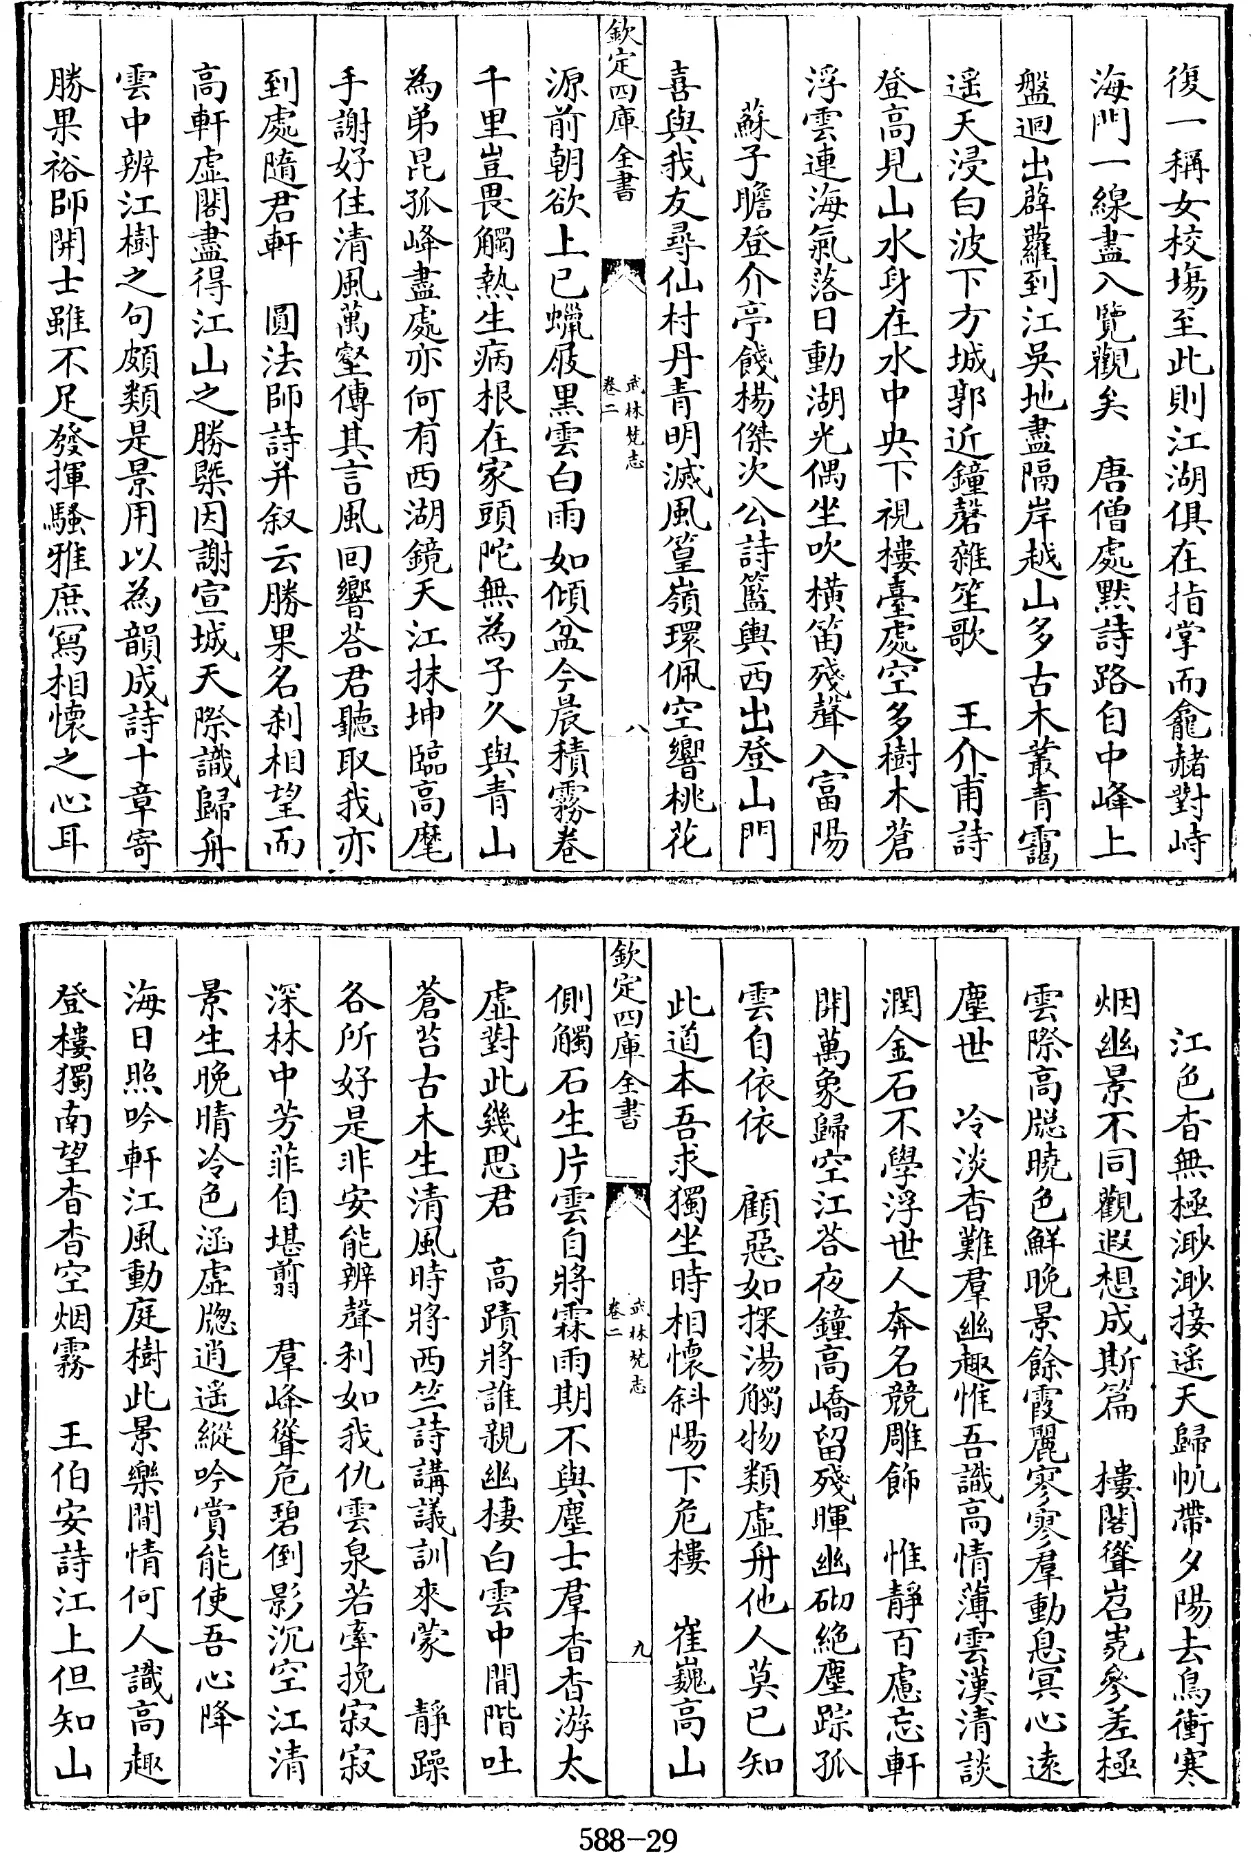 復一稱女校塲至此則江湖俱在指掌而龕赭對峙
海門一線盡入覽觀矣　唐僧處黙詩路自中峰上
盤迴出薜蘿到江吳地盡隔岸越山多古木叢青靄
遥天浸白波下方城郭近鐘磬雜笙歌　王介甫詩
登高見山水身在水中央下視樓臺處空多樹木蒼
浮雲連海氣落日動湖光偶坐吹横笛殘聲入富陽
蘇子瞻登介亭餞楊傑次公詩籃輿西出登山門
喜與我友尋仙村丹青明滅風篁嶺環佩空響桃花
欽定四庫全書
武林梵志
卷二
八
源前朝欲上已蠟屐黒雲白雨如傾盆今晨積霧卷
千里豈畏觸熱生病根在家頭陀無為子久與青山
為弟昆孤峰盡處亦何有西湖鏡天江抹坤臨高麾
手謝好住清風萬壑傳其言風回響荅君聽取我亦
到處隨君軒　圓法師詩并叙云勝果名刹相望而
高軒虚閣盡得江山之勝槩因謝宣城天際識歸舟
雲中辨江樹之句頗類是景用以為韻成詩十章寄
勝果裕師開士雖不足發揮騷雅庶寫相懷之心耳
江色杳無極渺渺接遥天歸帆帶夕陽去鳥衝寒
烟幽景不同觀遐想成斯篇　樓閣聳岧嶤參差極
雲際高牎曉色鮮晩景餘霞麗寥寥羣動息冥心逺
塵世　冷淡杳難羣幽趣惟吾識高情薄雲漢清談
潤金石不學浮世人奔名競雕飾　惟靜百慮忘軒
開萬象歸空江荅夜鐘高嶠留殘暉幽砌絶塵踪孤
雲自依依　顧惡如探湯觸物類虚舟他人莫已知
此道本吾求獨坐時相懷斜陽下危樓　崔巍高山
欽定四庫全書
武林梵志
卷二
九
側觸石生片雲自將霖雨期不與塵士羣杳杳游太
虚對此幾思君　高蹟將誰親幽棲白雲中閒階吐
蒼苔古木生清風時將西竺詩講議訓來蒙　靜躁
各所好是非安能辨聲利如我仇雲泉若牽挽寂寂
深林中芳菲自堪翦　羣峰聳危碧倒影沉空江清
景生晩晴冷色涵虚牎逍遥縱吟賞能使吾心降
海日照吟軒江風動庭樹此景樂閒情何人識高趣
登樓獨南望杳杳空烟霧　王伯安詩江上但知山
588-29